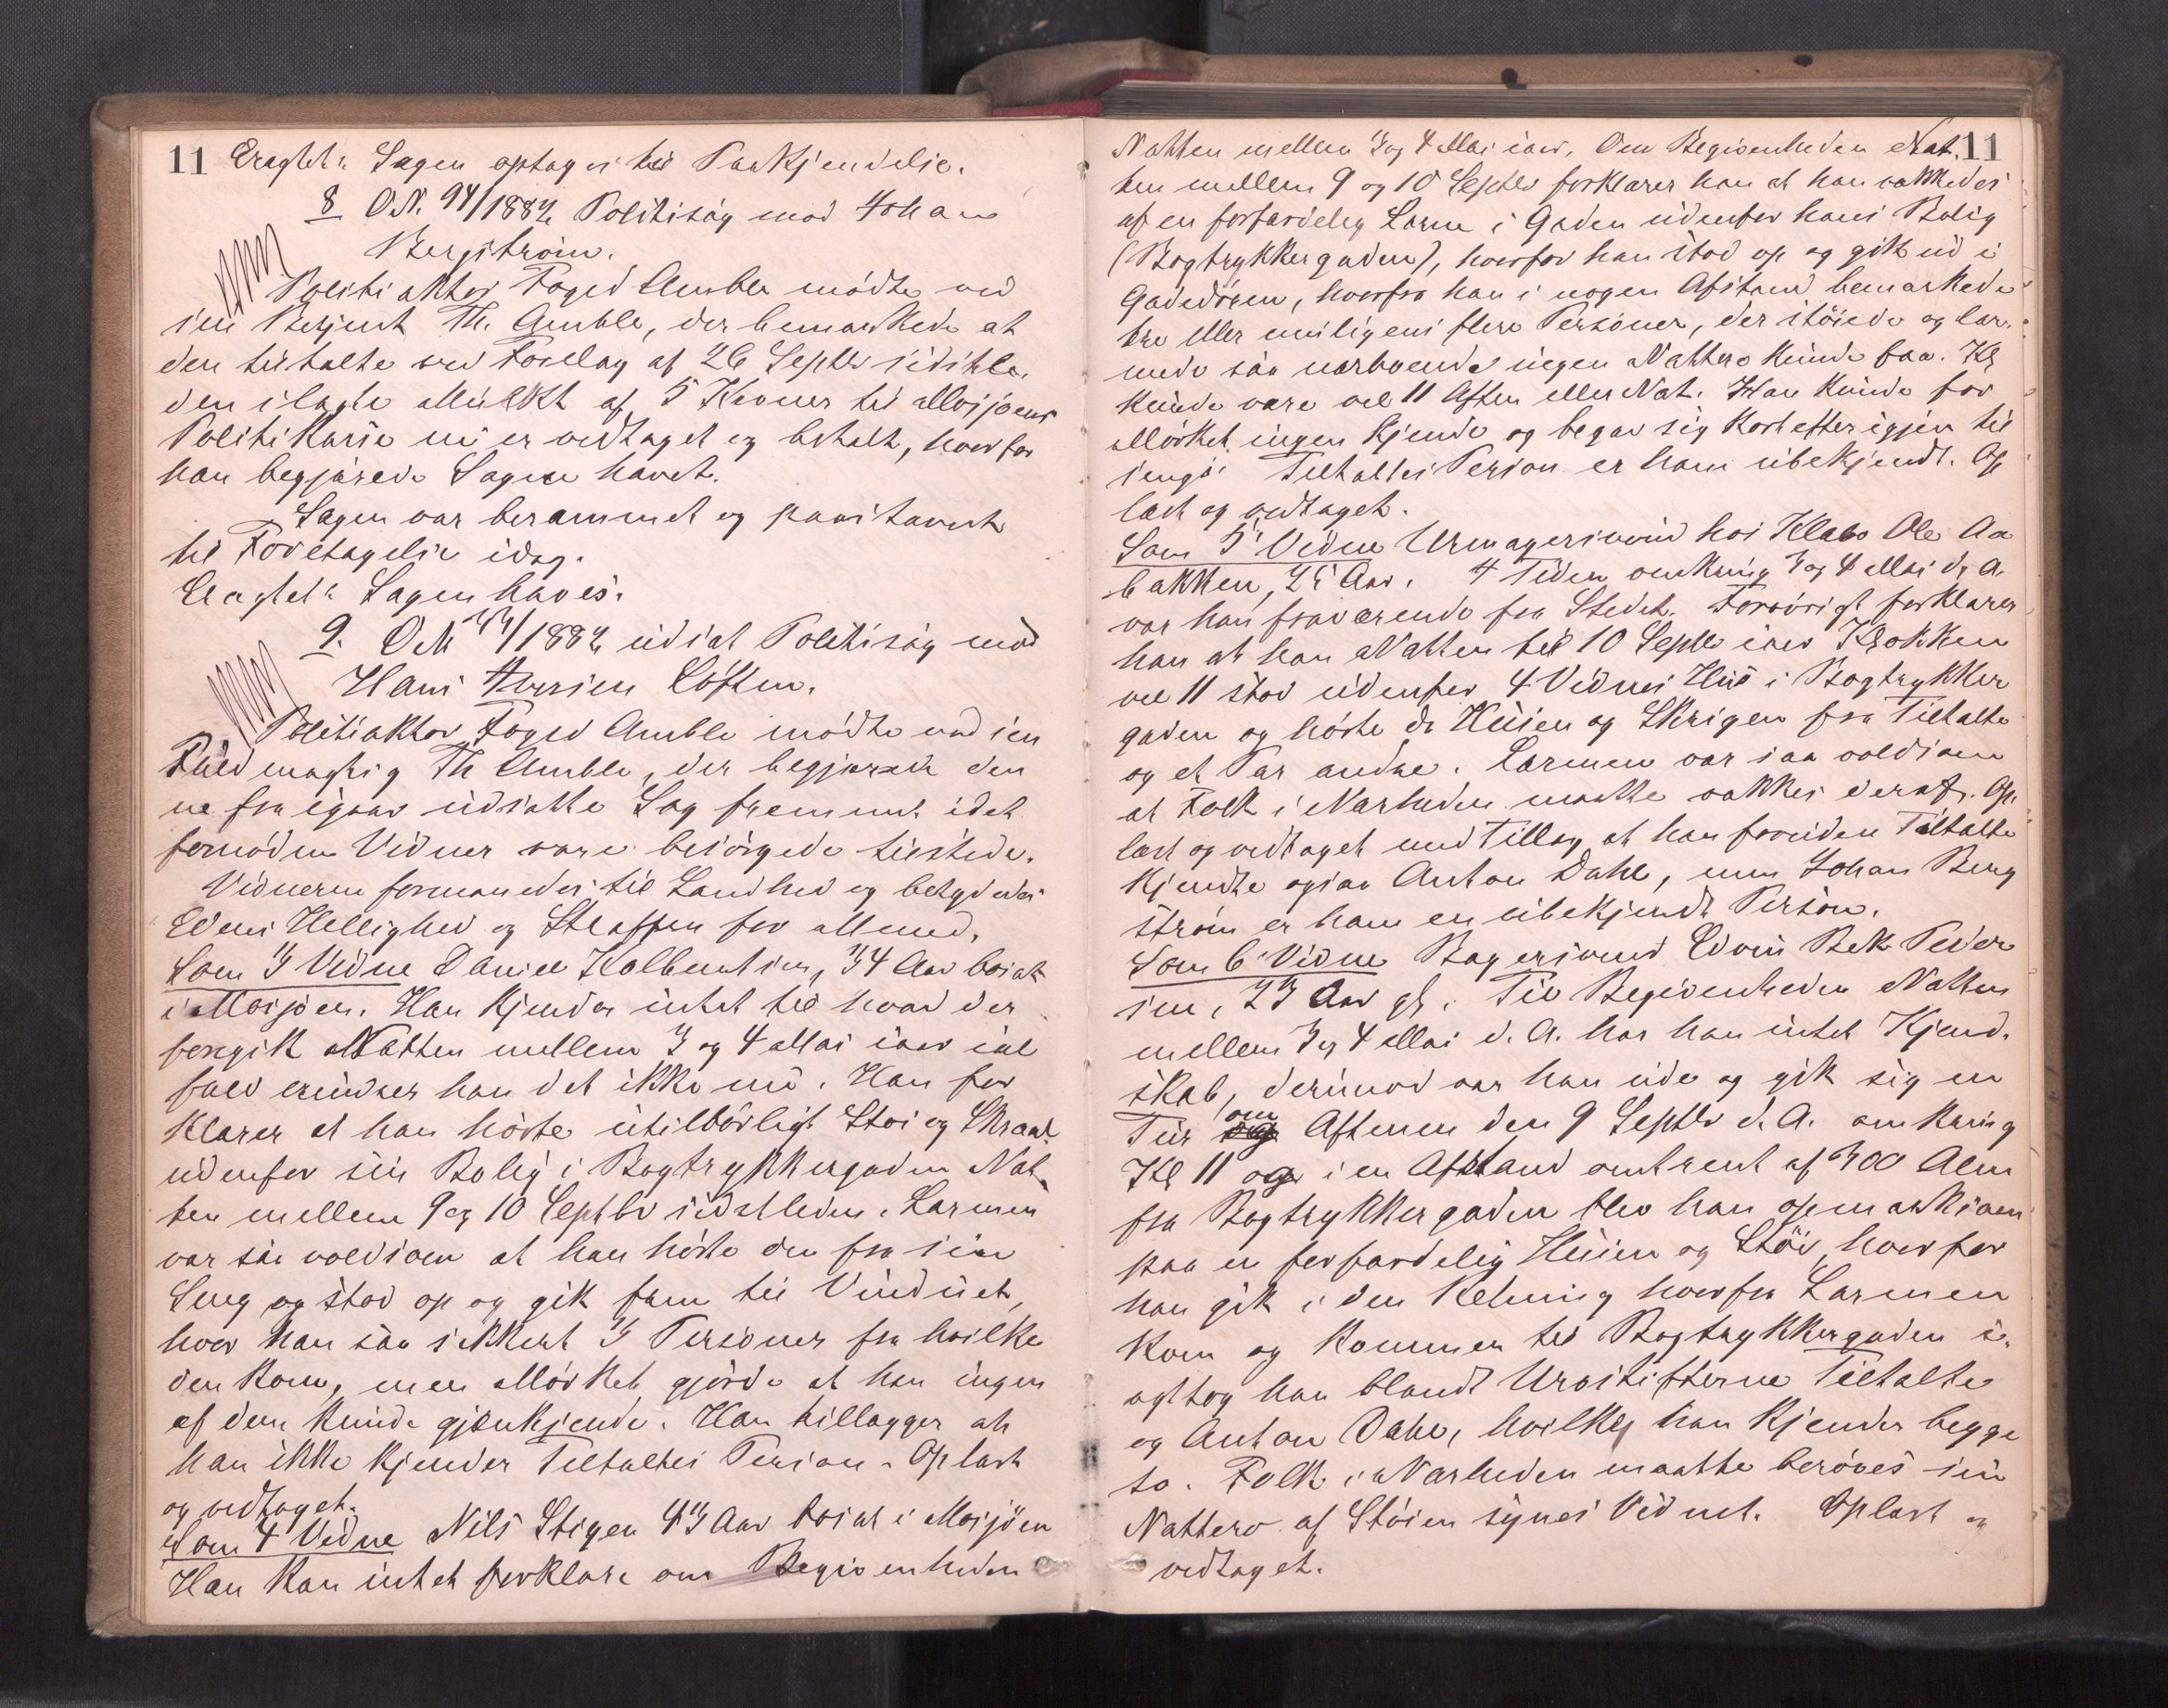 11 Eragtet: Sagen optages til Paakjendelse.
8 O.N. 94/1882 Politisag mod Johan
Bergström.
Politiaktor Foged Amble mödte ved
sin Betjent Th. Amble, der bemærkede at
den tiltalte ved Forelæg af 26 Septbr sidstle-
den ilagte Mulkt af 5 Kroner til Mosjöens
Politikasse nu er vedtaget og betalt, hvorfor
han begjærede Sagen hævet.
Sagen var berammet og paastævnt
til Foretagelse idag.
Eragtet: Sagen hæves.
9. O.N. /1882 udsat Politisag mod
Hans Iversen Löften.
Politiaktor Foged Amble mödte ved sin
Fuldmægtig Th Amble, der begjærede den
ne fra igaar udsatte Sag fremmet idet
fornödne Vidner vare besörgede tilstede.
Vidnerne formanedes til Sandhed og betydedes
Edens Hellighed og Straffen for Mened.
Som 3 Vidne Daniel Kolbentsen, 34 Aar bosat
i Mosjöen. Han kjender intet til hvad der
foregik Natten mellem 3 og 4 Mai iaar ial
fald erindrer han det ikke nu. Han for
klarer at han hörte utilbörligt Stöi og Skraal
udenfor sin Bolig i Bogtrykkergaden Nat-
ten mellem 9 og 10 Septbr sidstleden. Larmen
var saa voldsom at han hörte den fra sin
Seng og stod op og gik frem til Vinduet,
hvor han saa sikkert 3 Personer fra hvilke
den kom, men Mörket gjorde at han ingen
af dem kunde gjenkjende. Han tillægger at
han ikke kjender Tiltaltes Person. Oplæst
og vedtaget.
Som 4 Vidne Nils Stigen 43 Aar bosat i Mosjöen
Han kan intet forklare om Begivenheden
Natten mellem 3 og 4 Mai iaar. Om Begivenheden Nat- 11
ten mellem 9 og 10 Septbr forklarer han at han vækkedes
af en forfærdelig Larm i Gaden udenfor hans Bolig
(Bogtrykkergaden), hvorfor han stod op og gik ud i
Gadedören, hvorfra han i nogen Afstand bemærkede
tre eller muligens flere Personer, der stöiede og lar-
mede saa nærboende ingen Nattero kunde faa. Kl
kunde være vel 11 Aften eller Nat. Han kunde for
Mörket ingen kjende og begav sig kort efter igjen til
sengs. Tiltaltes Person er ham ubekjendt. Op
læst og vedtaget.
Som 5 Vidne Urmagersvend hos Klabo Ole Aa
bakken, 25 Aar. I Tiden omkring 3 og 4 Mai d. A.
var han fraværende fra Stedet. Forövrigt forklarer
han at han Natten til 10 Septbr iaar Klokken
vel 11 stod udenfor 4 Vidnes Hus i Bogtrykker
gaden og hörte da Huien og Skrigen fra Tiltalte
og et Par andre. Larmen var saa voldsom
at Folk i Nærheden maatte vækkes deraf. Op-
læst og vedtaget med Tillæg at han foruden Tiltalte
kjendte ogsaa Anton Dahl, men Johan Berg
ström er ham en ubekjendt Person.
Som 6 Vidne Bagersvend Edvin Bek Peder
sen, 23 Aar gl. Til Begivenheden Natten
mellem 3 og 4 Mai d. A. har han intet Kjend-
skab, derimod var han ude og gik sig en
Tur om Aftenen den 9 Septbr d. A. omkring
Kl 11 og i en Afstand omtrent af 300 Alen
fra Bogtrykkergaden blev han opmærksom
paa en forfærdelig Huien og Stöi, hvorfor
han gik i den Retning hvorfra Larmen
kom og kommen til Bogtrykkergaden i-
agttog han blandt Urostifterne Tiltalte
og Anton Dahl, hvilke han kjender begge
to. Folk i Nærheden maatte beröves sin
Nattero af Stöien synes Vidnet. Oplæst og
vedtaget.